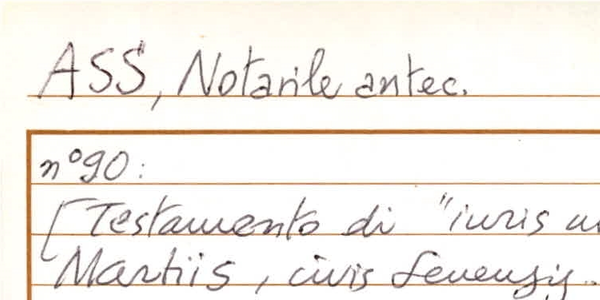 ASS, Notarile antec.
n° 90:
[Testamento di "iuris
Martiis, civis Senensis